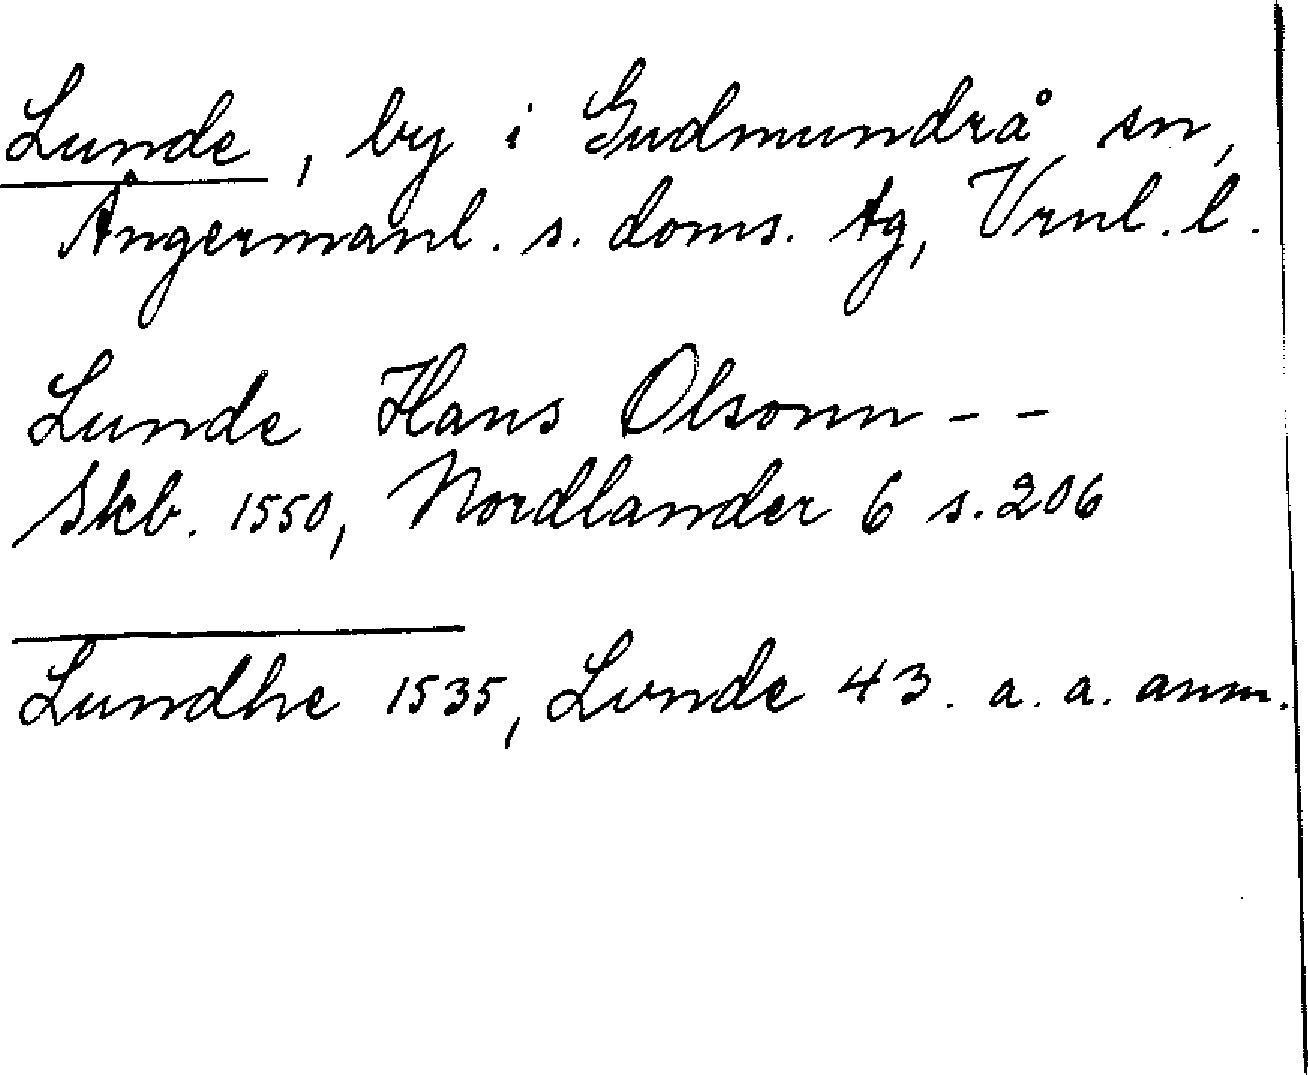 Lunde, by i Gudmundrå sn,
Ångermanl. s. doms. tg, Vrnl. l.
Lunde Hans Olsonn - -
Skb. 1550, Nordlander 6 s. 206
Lundhe 1535, Lvnde 43. a. a. anm.